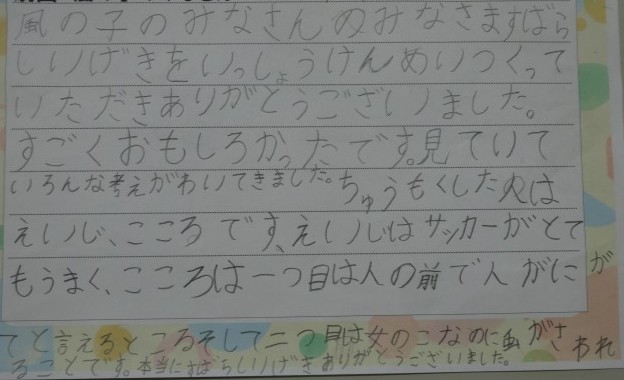 風の子のみなさんのみなさますばら
しいげきをいっしょうけんめいつくって
いただきありがとうございました。
すごくおもしろかったです。見ていて
いろんな考えがわいてきました。ちゅうもくした人は
えいじ、こころです、えいじはサッカーがとて
もうまく、こころは一つ目は人の前で人がにが
てと言えるところそして二つ目は女のこなのに虫がさわれ
ることです。本当にすばらしいげきありがとうございました。